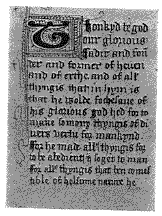 Thonkyd be god
our glorious
fader and foun
der and former of heuen
and of erthe and of all
thyngis that in hym is
that he wolde fochesaue of
his glorious god hed for to
make so mony thyngis of di
uers vertu for mankynd
For he made all thyngis for
to be obedient & soget to man
for all thyngis that ben comest
ible of helsome nature he